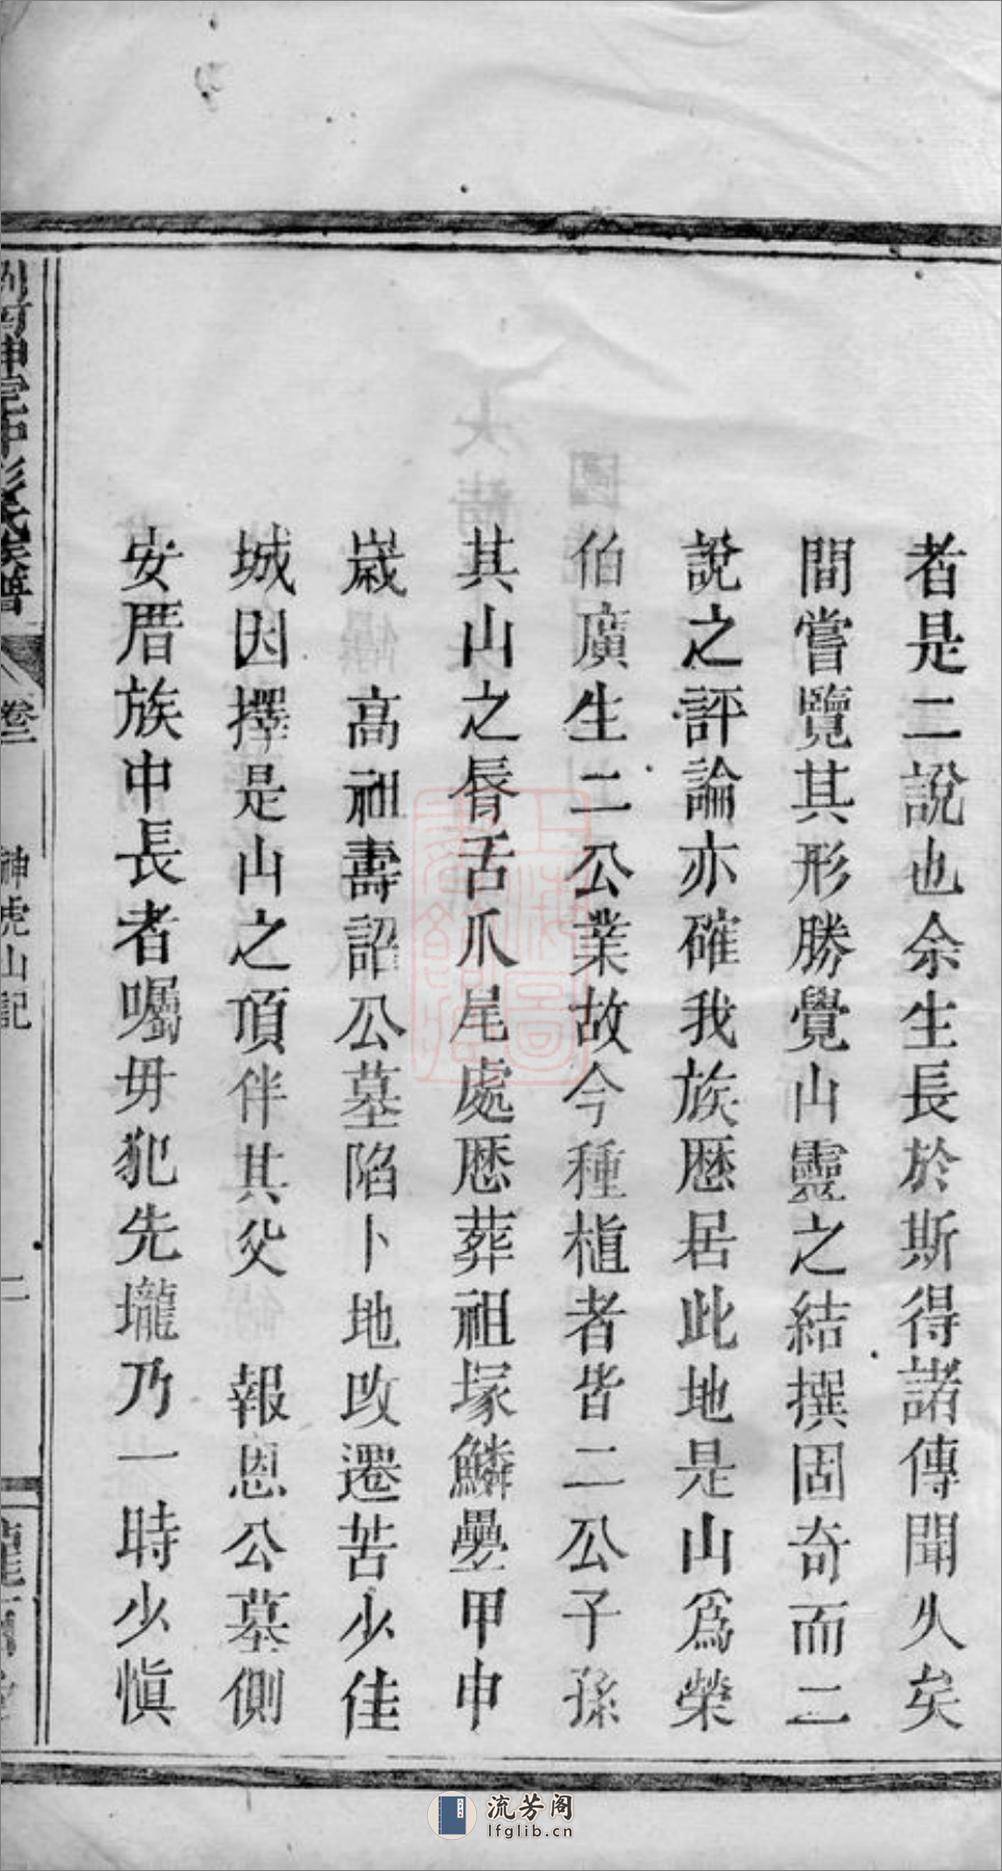 者是二說也余生長於斯得諸傳聞久矣
間嘗覽其形勝覺山靈之結撰固奇而二
說之評論亦確我族歷居此地是山爲榮
伯廣生二公業故今種植者皆二公子孫
其山之唇舌爪尾處歷葬祖塚鱗疊甲申
歲　高祖壽詔公墓陷卜地改遷苦少佳
城因擇是山之頂伴其父　報恩公墓側
安厝族中長者囑毋犯先壠乃一時少愼
彭氏族譜
卷二
神虎山記
二
流芳阁
lfglib.cn